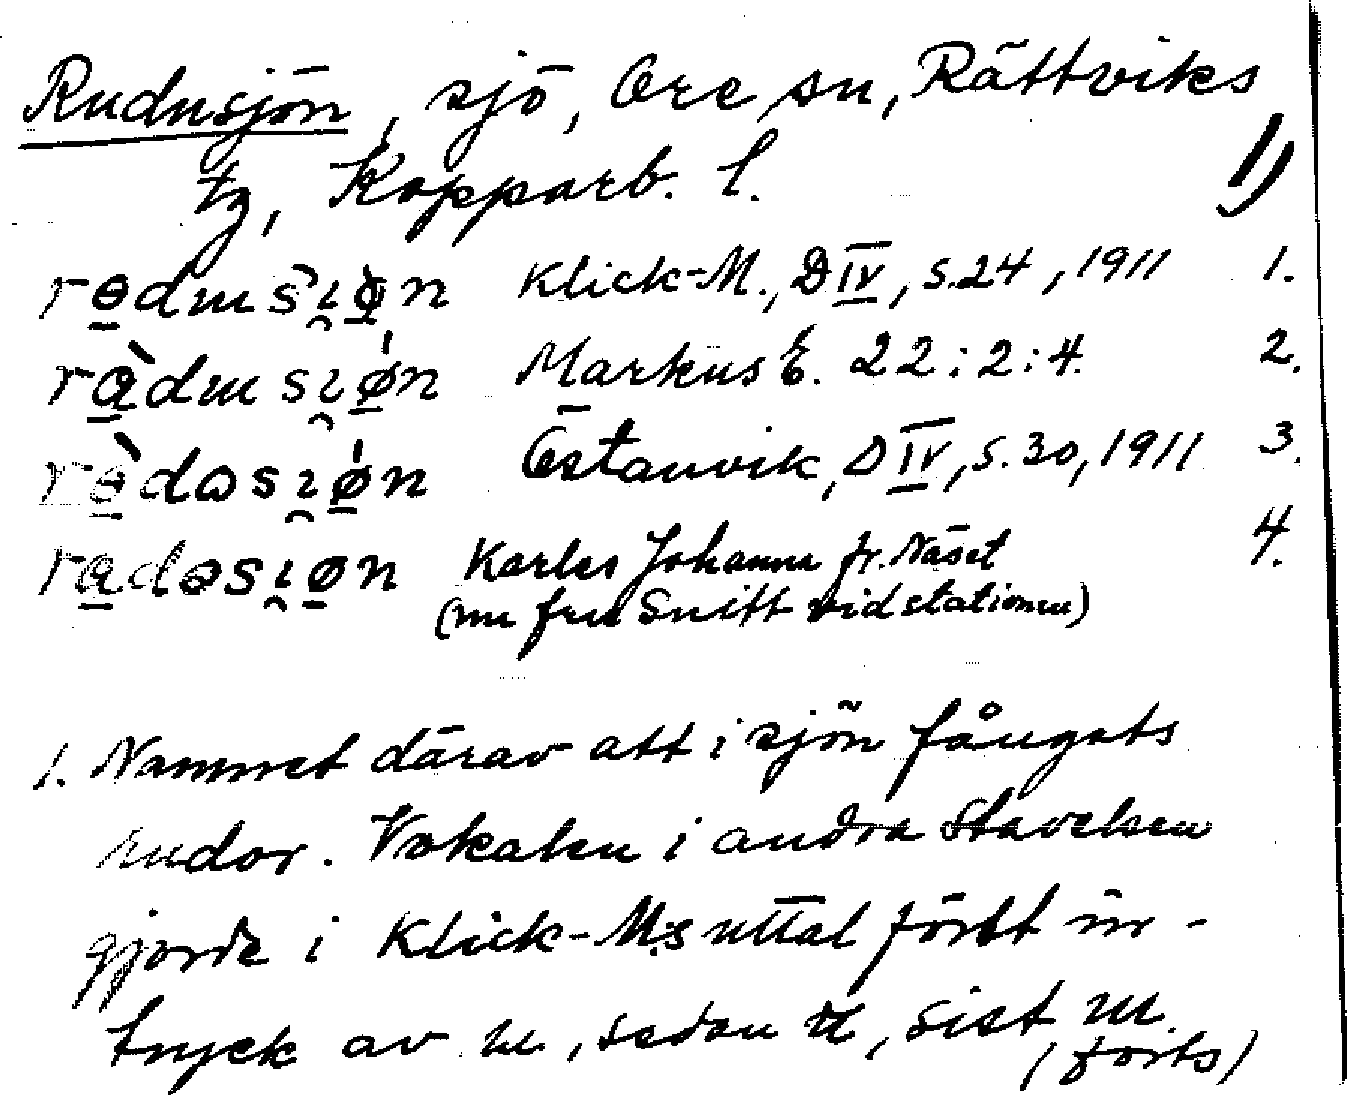 Rudusjön, sjö, Ore sn, Rättviks
tg, Kopparb. l.
1)
Klick-M., D IV, s.24, 1911 1.
Markus E. 22:2:4. 2.
Östanvik, D IV, s.30, 1911 3.
Karles Johanna fr. Näset 4.
(nu fru Snitt vid stationen)
1. Namnet därav att i sjön fångats
rudor. Vokalen i andra stavelsen
gjorde i Klick-M:s uttal först in-
tryck av ɯ, sedan u, sist ɯ.
(forts)